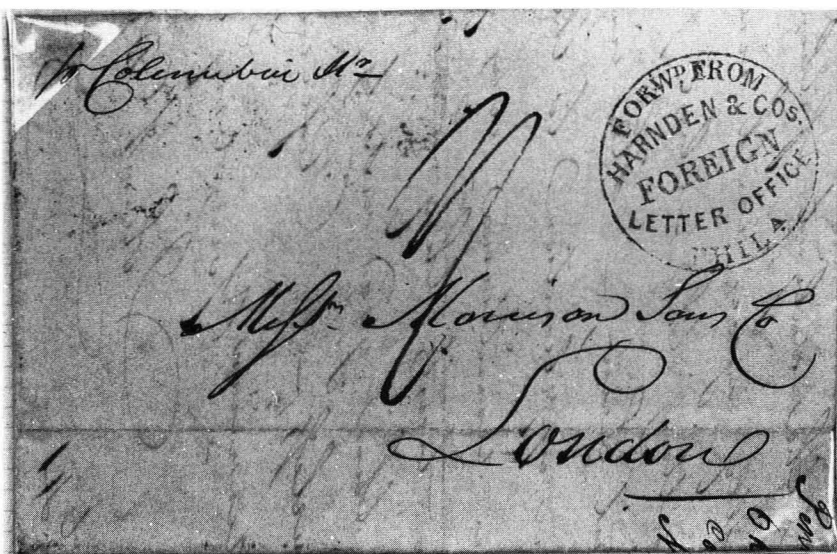 pr Columbia Str
FORWD FROM
HARNDEN & COS.
FOREIGN
LETTER OFFICE
PHILA
Messrs Morrison Sons Co
London